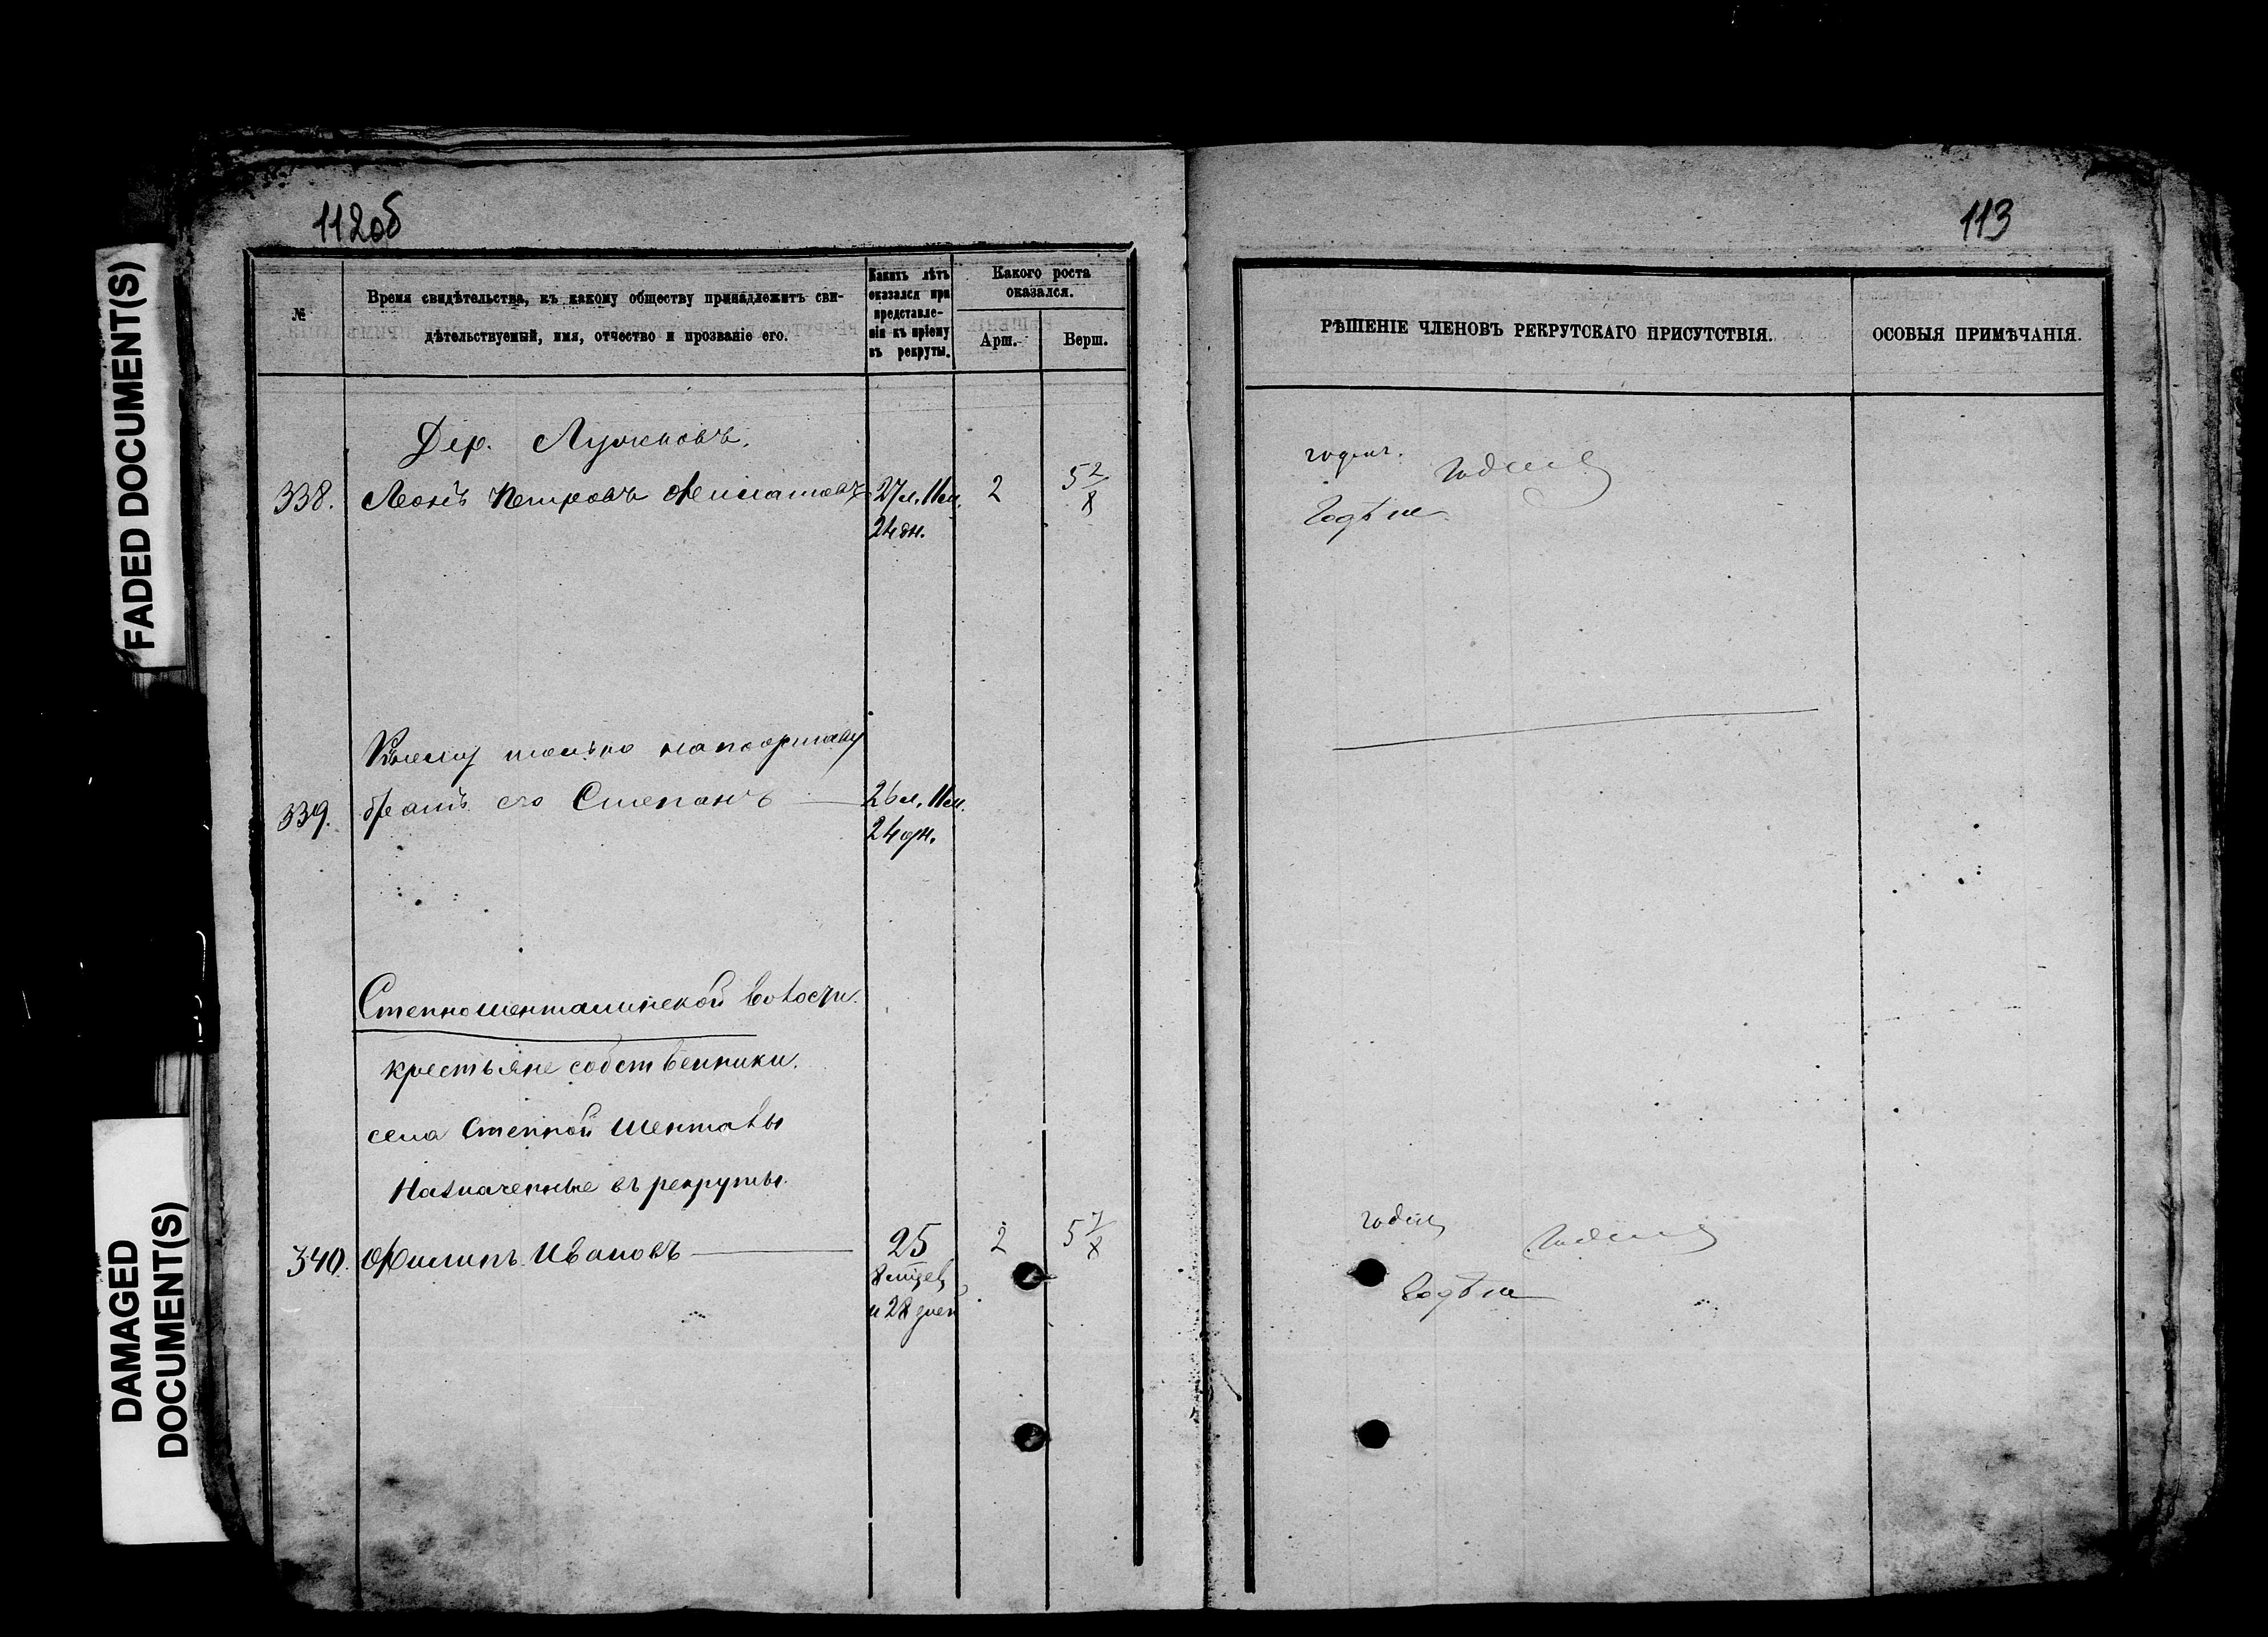 112об
№
Время свидѣтельства, къ какому обществу принадлежитъ сви-
дѣтельствуемый, имя, отчество и прозваніе его.
Какихъ лѣтъ
оказался при
представле-
ніи къ пріему
въ рекруты.
Какого роста
оказался.
Арш.
Верш.
Дер.
338.
Петровъ
27 л. 11 м.
24 дн.
2
5 2/8
только
339.
братъ его Степанъ
26 л. 11 м.
24 дн.
Степношенталинской волости.
крестьяне собственники.
села Степной Шенталы
Назначенные въ рекруты.
340.
Филипъ Ивановъ
25
8 мцев
и 28 дней
2
5 7/8
113
РѢШЕНІЕ ЧЛЕНОВЪ РЕКРУТСКАГО ПРИСУТСТВІЯ.
ОСОБЫЯ ПРИМѢЧАНІЯ.
годенъ.
FADED DOCUMENT(S)
DAMAGED
DOCUMENT(S)